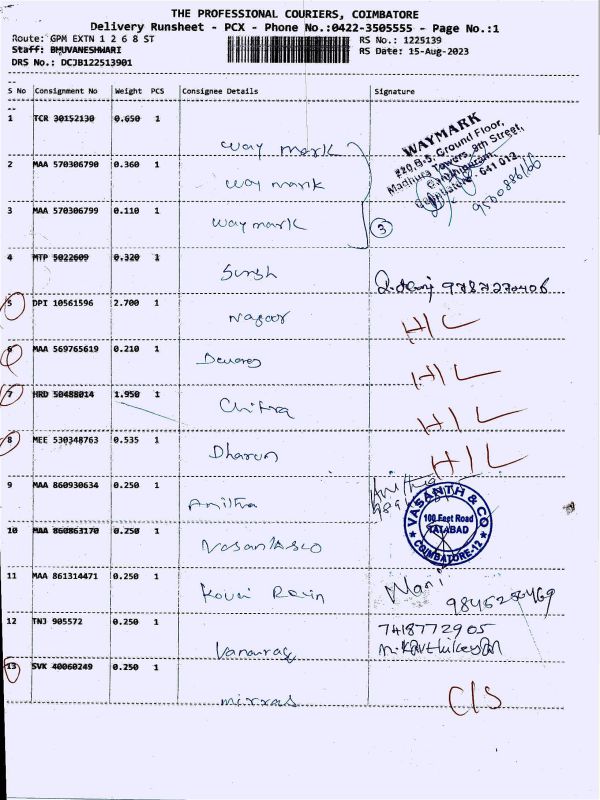 THE PROFESSIONAL COURIERS, COIMBATORE
Delivery Runsheet - PCX - Phone No.:0422-3505555 - Page No.:1
Route: GPM EXTN 1 2 6 8 ST RS No.: 1225139
Staff: BHUVANESHWARI RS Date: 15-Aug-2023
DRS No.: DCJB122513901
S No Consignment No Weight PCS Consignee Details Signature
1 TCR 30152130 0.650 1
way mark
WAYMARK
220,B-5, Ground Floor,
Madhura Towers, 8th Street,
Gandhipuram,
Coimbatore - 641 012.
2 MAA 570306790 0.360 1
way mark
3 MAA 570306799 0.110 1
way mark
3
4 MTP 5022609 0.320 1
Singh
5 DPI 10561596 2.700 1
Nagoor H/L
6 MAA 569765619 0.210 1
H/L
7 HRD 50488014 1.950 1
Chitra H/L
8 MEE 530348763 0.535 1
Dharun H/L
9 MAA 860930634 0.250 1
Anitha Anitha
VASANTH & CO
100 Feet Road
TATABAD
COIMBATORE-12
10 MAA 860863170 0.250 1
11 MAA 861314471 0.250 1
Kovai Mani
12 TNJ 905572 0.250 1
7418772905
13 SVK 40060249 0.250 1
C/S